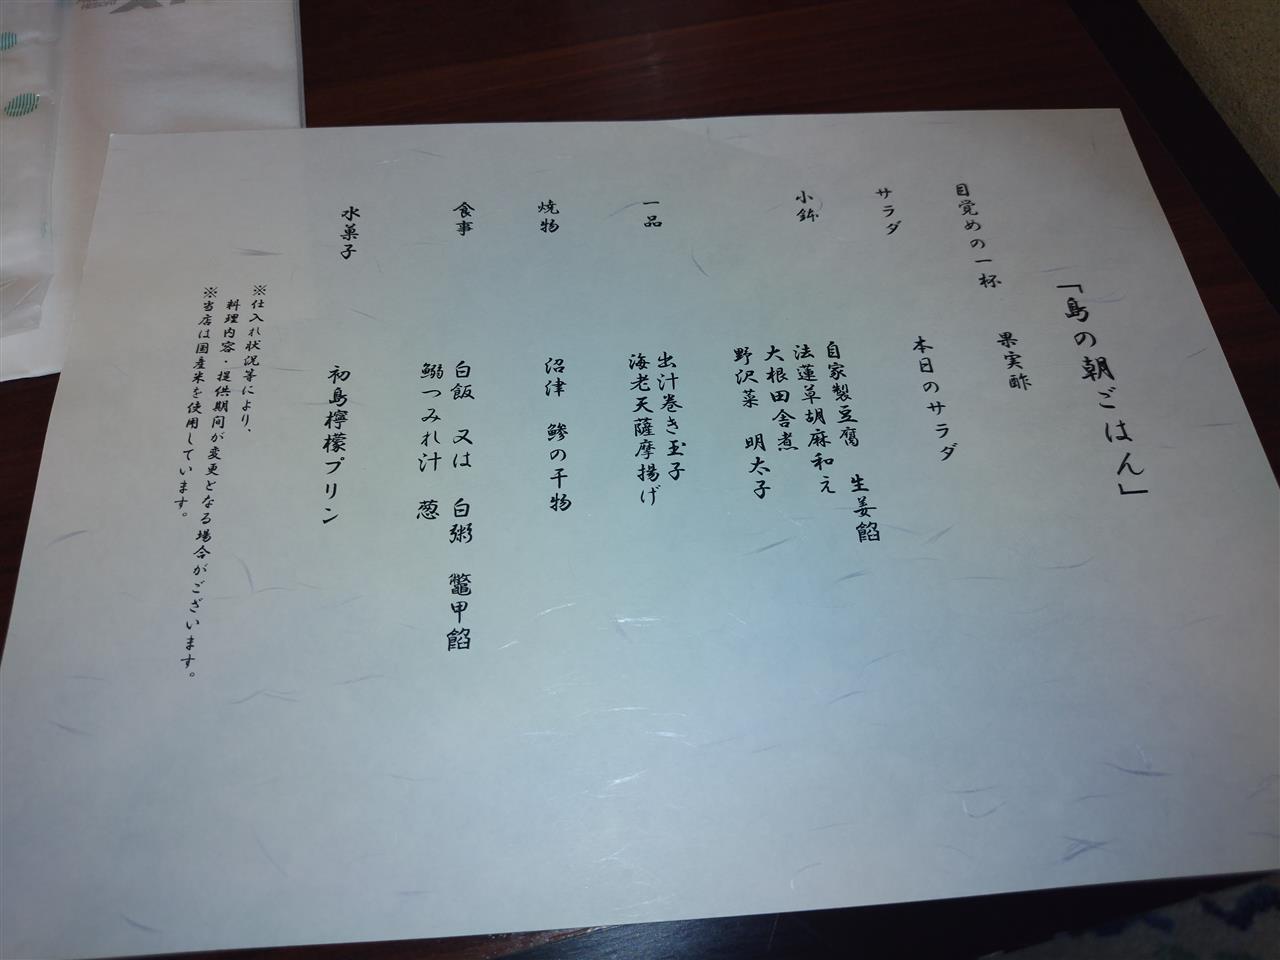 「島の朝ごはん」
目覚めの一杯　果実酢
サラダ　本日のサラダ
小鉢　自家製豆腐　生姜餡
法蓮草胡麻和え
大根田舎煮
野沢菜　明太子
一品　出汁巻き玉子
海老天薩摩揚げ
焼物　沼津　鯵の干物
食事　白飯　又は　白粥　鼈甲餡
鰯つみれ汁　葱
水菓子　初島檸檬プリン
※仕入れ状況等により、
料理内容・提供期間が変更となる場合がございます。
※当店は国産米を使用しています。